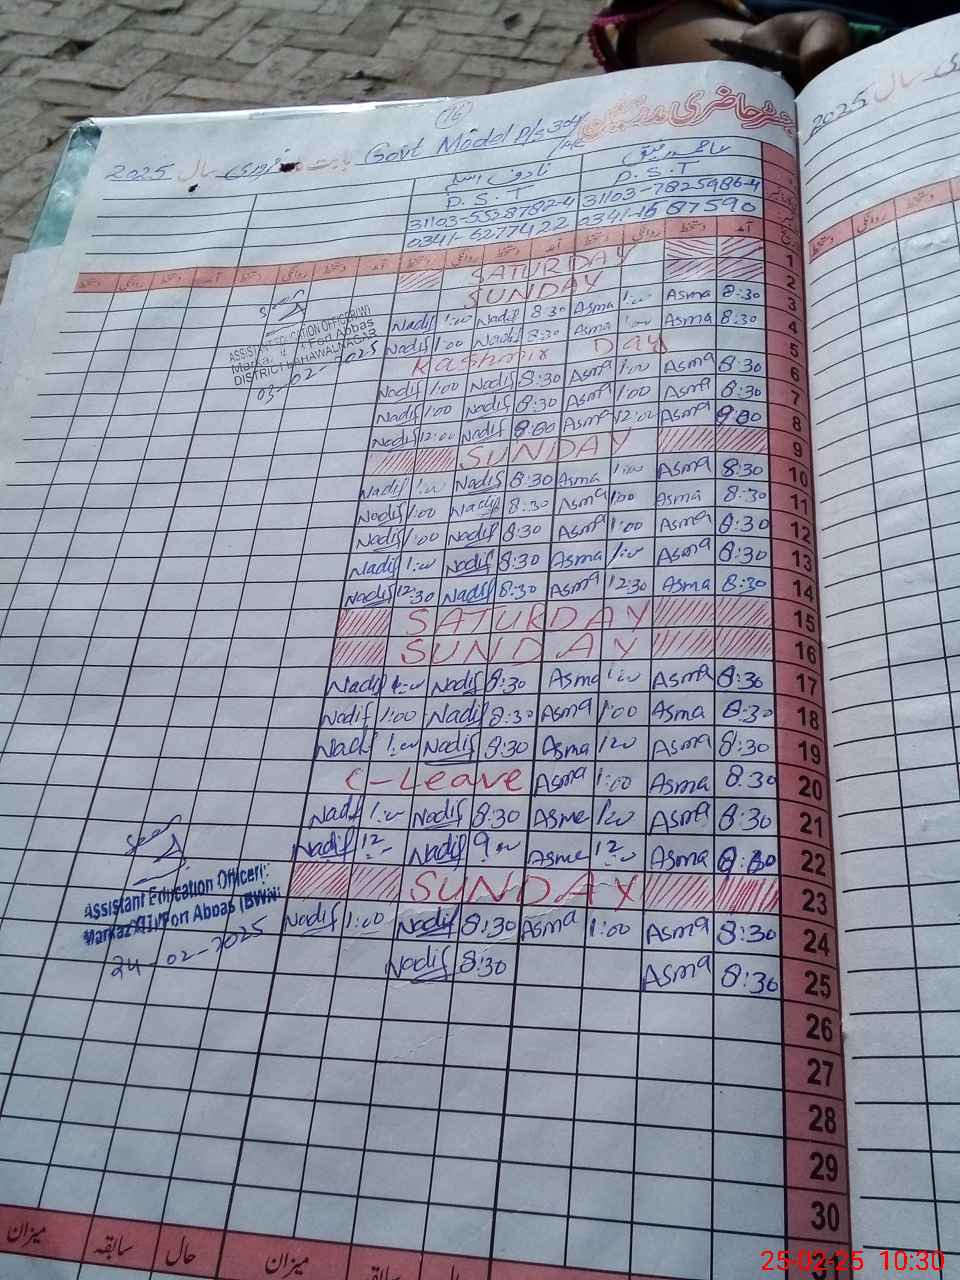 16
رجسٹر حاضری مدرسین
Govt Model P/S 304/HR
بابت ماہ فروری سال 2025
نادف وسیم
P.S.T
P.S.T
31103-5538782-4 31103-7825986-4
0341-6277422 0341-1587590
دستخط روانگی دستخط آمد دستخط روانگی دستخط آمد دستخط روانگی دستخط آمد دستخط روانگی دستخط آمد
SATURDAY 1
SUNDAY 2
Nadif 1:00 Nadif 8:30 Asma 1:00 Asma 8:30 3
Nadif 1:00 Nadif 8:30 Asma 1:00 Asma 8:30 4
Kashmir Day 5
Nadif 1:00 Nadif 8:30 Asma 1:00 Asma 8:30 6
Nadif 1:00 Nadif 8:30 Asma 1:00 Asma 8:30 7
Nadif 12:00 Nadif 9:00 Asma 12:00 Asma 9:00 8
SUNDAY 9
Nadif 1:00 Nadif 8:30 Asma 1:00 Asma 8:30 10
Nadif 1:00 Nadif 8:30 Asma 1:00 Asma 8:30 11
Nadif 1:00 Nadif 8:30 Asma 1:00 Asma 8:30 12
Nadif 1:00 Nadif 8:30 Asma 1:00 Asma 8:30 13
Nadif 12:30 Nadif 8:30 Asma 12:30 Asma 8:30 14
SATURDAY 15
SUNDAY 16
Nadif 1:00 Nadif 8:30 Asma 1:00 Asma 8:30 17
Nadif 1:00 Nadif 8:30 Asma 1:00 Asma 8:30 18
Nadif 1:00 Nadif 8:30 Asma 1:00 Asma 8:30 19
C-Leave Asma 1:00 Asma 8:30 20
Nadif 1:00 Nadif 8:30 Asma 1:00 Asma 8:30 21
Nadif 12:00 Nadif 9:00 Asma 12:00 Asma 22
SUNDAY 23
Nadif 1:00 Nadif 8:30 Asma 1:00 Asma 8:30 24
Nadif 8:30 Asma 8:30 25
26
27
28
29
30
ASSISTANT EDUCATION OFFICER(W)
Markaz Fort Abbas
DISTRICT BAHAWALNAGAR
03-02-2025
Assistant Education Officer
Markaz Fort Abbas (BWN)
24-02-2025
میزان سابقہ حال میزان سابقہ حال
سال 2025
دستخط روانگی دستخط
25-02-25 10:30